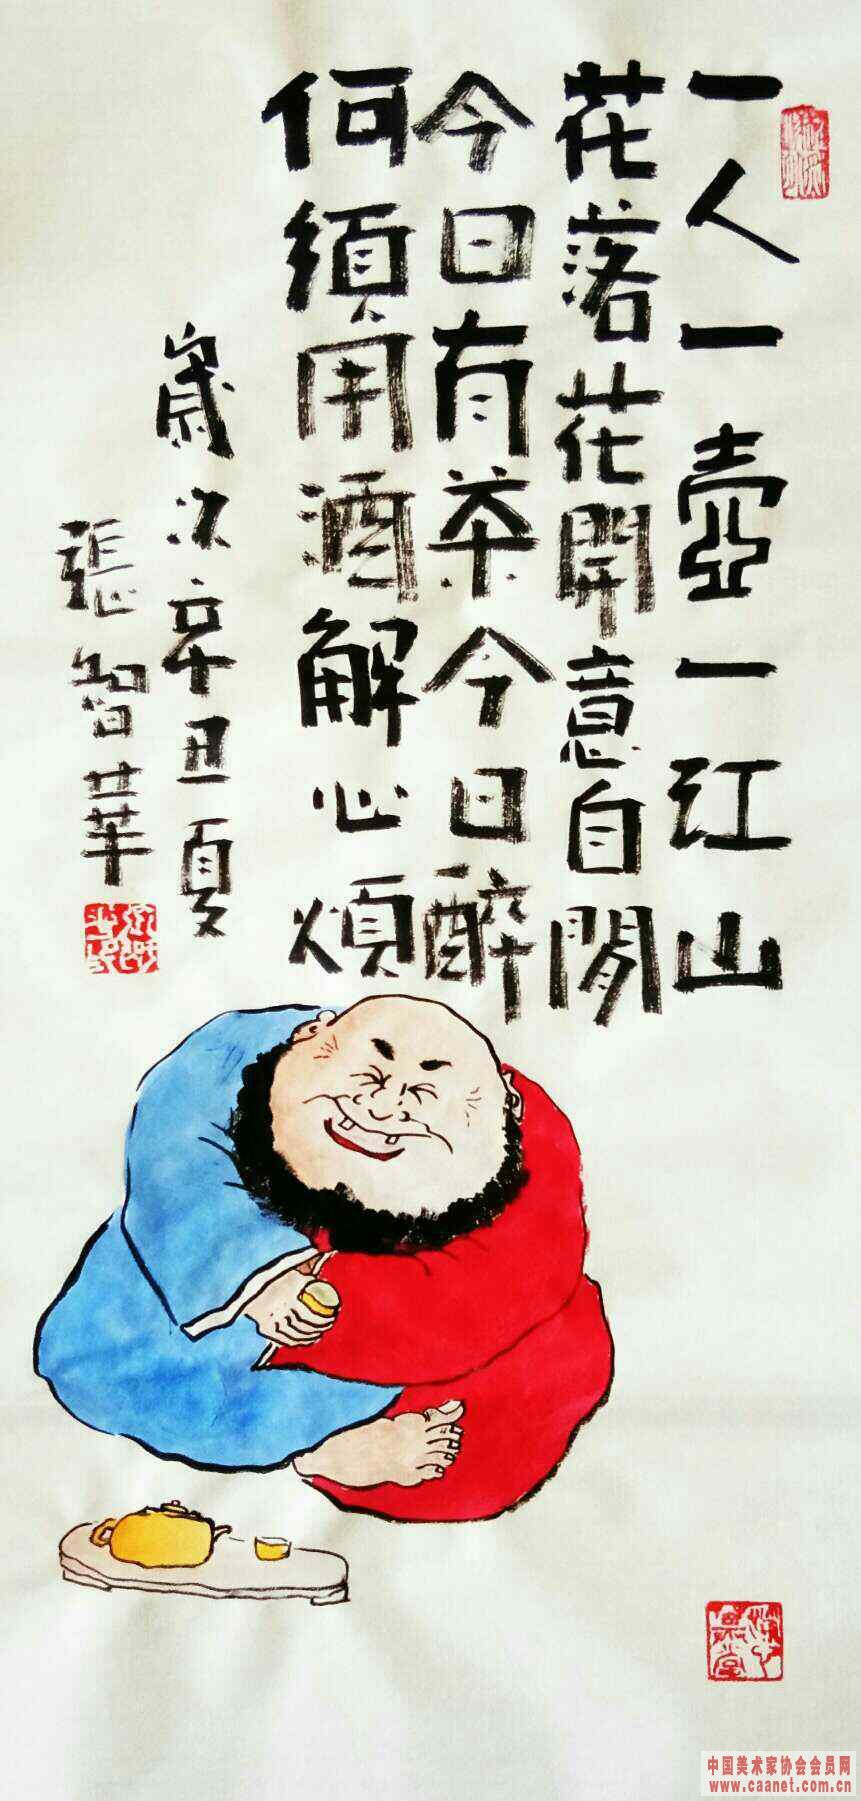 一人一壺一江山
花落花開意自閒
今日有茶今日醉
何須用酒解心煩
歲次辛丑夏
張智華
中国美术家协会会员网
www.caanet.com.cn